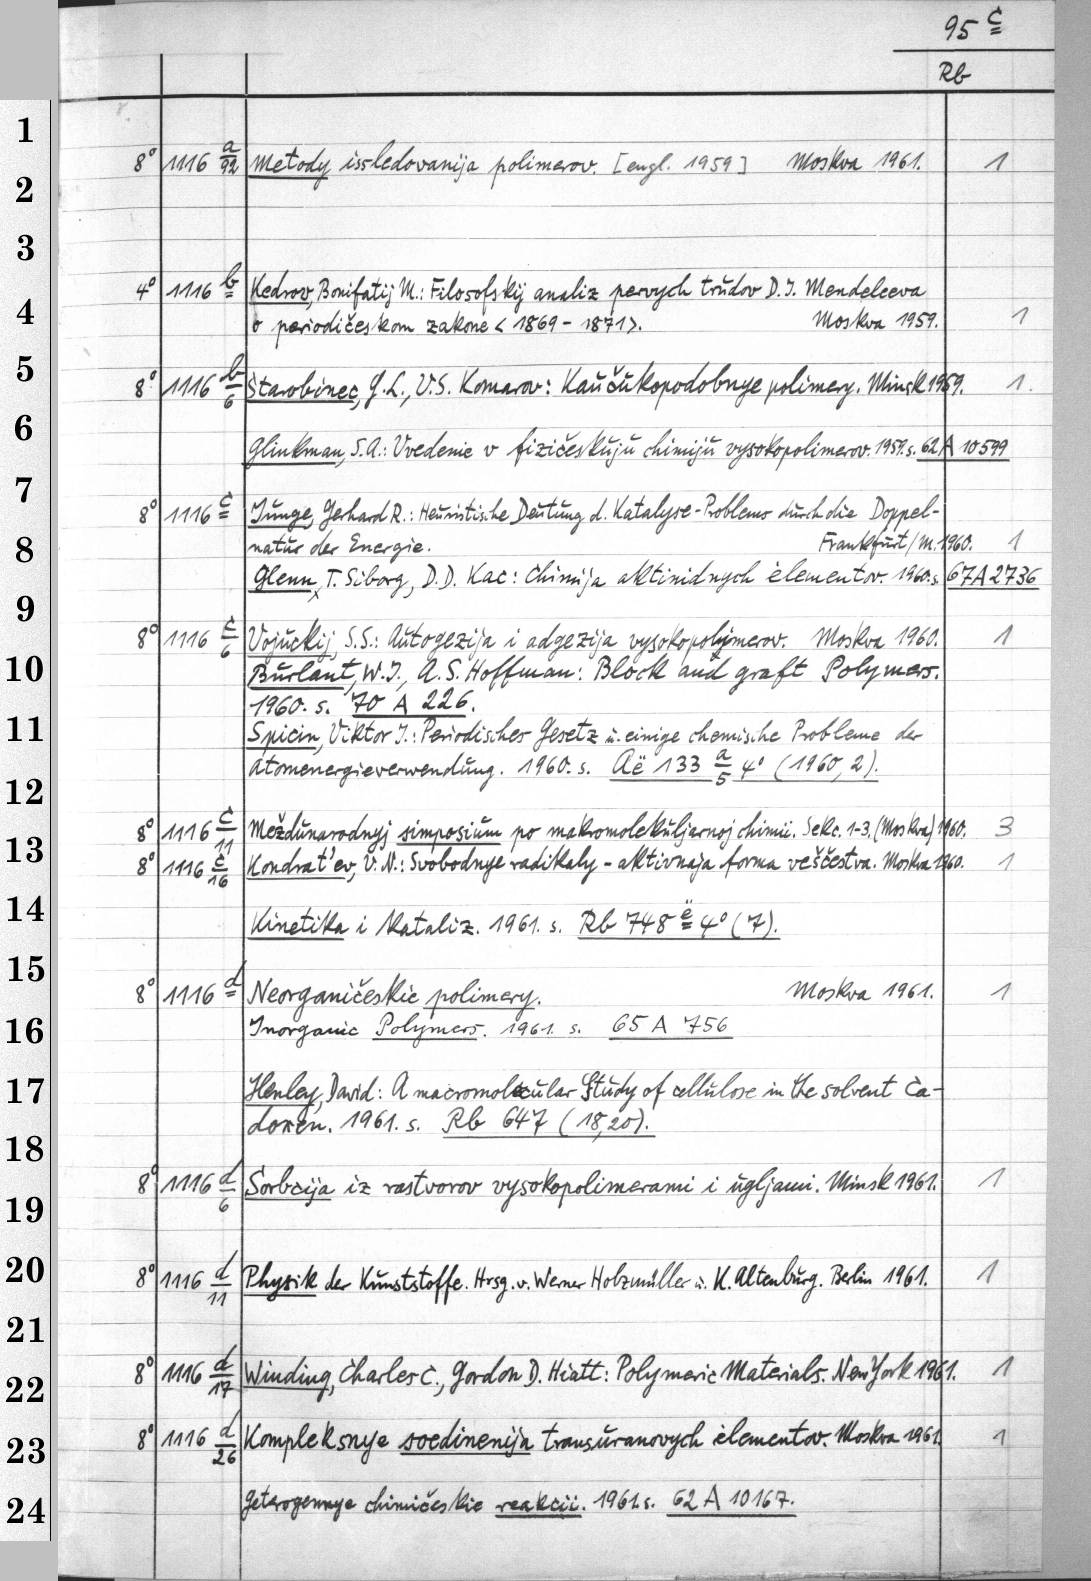 95 c
Rb
8° 1116 a/92 Metody issledovanija polimerov. [engl. 1959] Moskva 1961. 1
4° 1116 b Kedrov, Bonifatij M.: Filosofskij analiz pervych trudov D.I. Mendeleeva
o periodičeskom zakone <1869-1871>. Moskva 1959. 1
8° 1116 b/6 Starobinec, G.L., V.S. Komarov: Kaučukopodobnye polimery. Minsk 1959. 1.
Glinkman, S.A.: Vvedenie v fizičeskuju chimiju vysokopolimerov. 1959. s. 62 A 10599
8° 1116 c Junge, Gerhard R.: Heuristische Deutung d. Katalyse-Problems durch die Doppel-
natur der Energie. Frankfurt/M. 1960. 1
Glenn, T. Siborg, D.D. Kac: Chimija aktinidnych ėlementov. 1960. s. 67A2736
8° 1116 c/6 Vojuckij, S.S.: Autogezija i adgezija vysokopolymerov. Moskva 1960. 1
Burlant, W.J., A.S. Hoffman: Block and graft Polymers.
1960. s. 70 A 226.
Spicin, Viktor I.: Periodisches Gesetz u. einige chemische Probleme der
Atomenergieverwendung. 1960. s. Aë 133 a/5 4° (1960, 2).
8° 1116 c/11 Meždunarodnyj simposium po makromolekuljarnoj chimii. Sekc. 1-3. (Moskva) 1960. 3
8° 1116 c/16 Kondrat'ev, V.N.: Svobodnye radikaly - aktivnaja forma veščestva. Moskva 1960. 1
Kinetika i kataliz. 1961. s. Rb 748 ë 4° (7).
8° 1116 d Neorganičeskie polimery. Moskva 1961. 1
Inorganic Polymers. 1961. s. 65 A 756
Henley, David: A macromolecular Study of cellulose in the solvent Ca-
doxen. 1961. s. Rb 647 (18,20).
8° 1116 d/6 Sorbcija iz rastvorov vysokopolimerami i ugljami. Minsk 1961. 1
8° 1116 d/11 Physik der Kunststoffe. Hrsg. v. Werner Holzmüller u. K. Altenburg. Berlin 1961. 1
8° 1116 d/17 Winding, Charles C., Gordon D. Hiatt: Polymeric Materials. New York 1961. 1
8° 1116 d/26 Kompleksnye soedinenija transuranovych ėlementov. Moskva 1961. 1
Geterogennye chimičeskie reakcii. 1961. s. 62 A 10167.
1
2
3
4
5
6
7
8
9
10
11
12
13
14
15
16
17
18
19
20
21
22
23
24